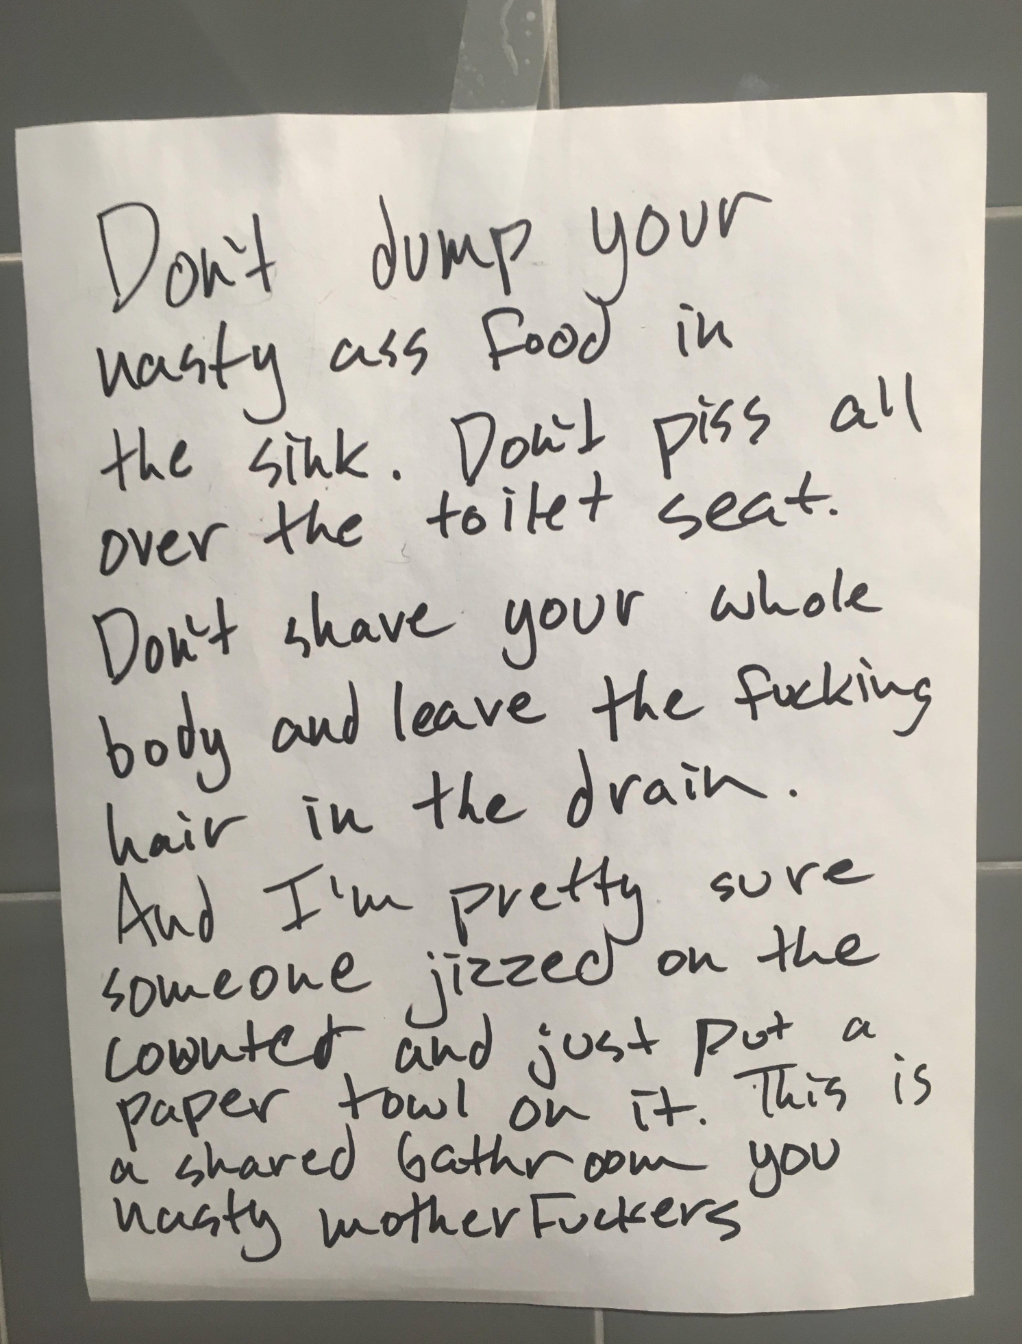 Don't dump your
nasty ass food in
the sink. Don't piss all
over the toilet seat.
Don't shave your whole
body and leave the fucking
hair in the drain.
And I'm pretty sure
someone jizzed on the
counter and just put a
paper towl on it. This is
a shared bathroom you
nasty motherFuckers